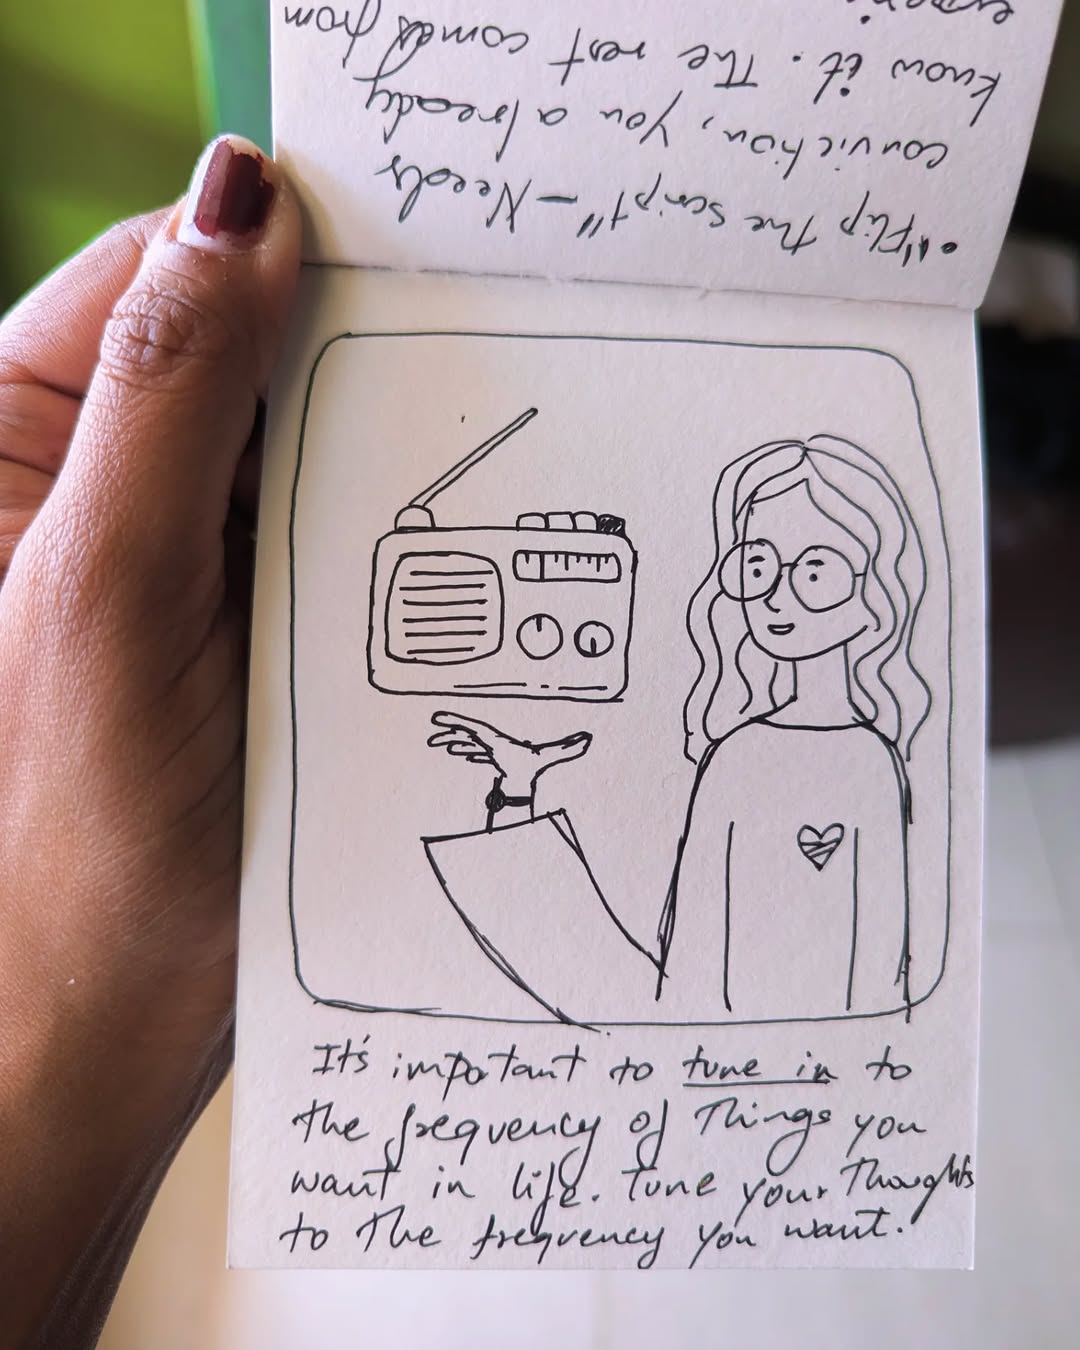 • "Flip the script" – Needs
conviction, you already
know it. The rest comes from
It's important to tune in to
the frequency of Things you
want in life. Tune your Thoughts
to the frequency you want.